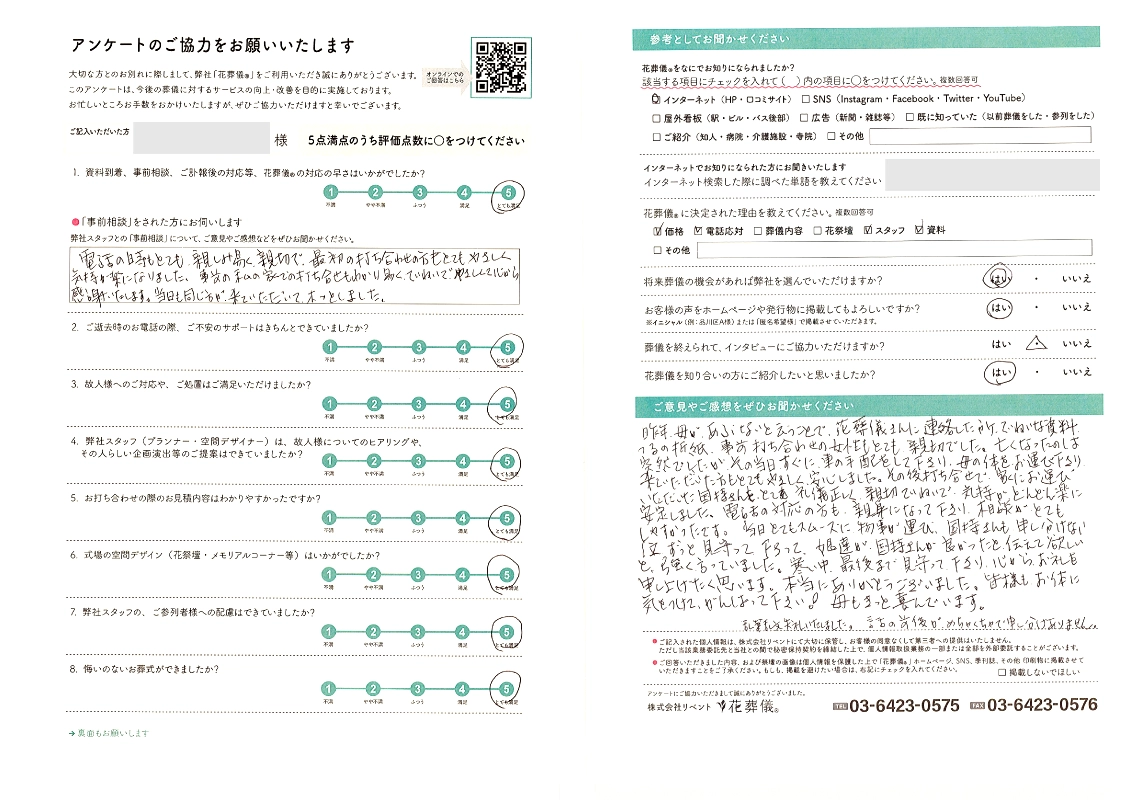 アンケートのご協力をお願いいたします
大切な方とのお別れに際しまして、弊社「花葬儀®」をご利用いただき誠にありがとうございます。
このアンケートは、今後の葬儀に対するサービスの向上・改善を目的に実施しております。
お忙しいところお手数をおかけいたしますが、ぜひご協力いただけますと幸いでございます。
オンラインでの
ご回答はこちら
ご記入いただいた方
様
5点満点のうち評価点数に○をつけてください
1. 資料到着、事前相談、ご訃報後の対応等、花葬儀®の対応の早さはいかがでしたか?
1 2 3 4 5
不満 やや不満 ふつう 満足 とても満足
●「事前相談」をされた方にお伺いします
弊社スタッフとの「事前相談」について、ご意見やご感想などをぜひお聞かせください。
電話の時もとても、親しみ易く親切で、最初の打ち合わせの方もとてもやさしく
気持が楽になりました。事前の私の家での打ち合せもわかり易く、ていねいでやさしくて心から
感謝いたします。当日も同じ方が来ていただいて、ホッとしました。
2. ご逝去時のお電話の際、ご不安のサポートはきちんとできていましたか?
1 2 3 4 5
不満 やや不満 ふつう 満足 とても満足
3. 故人様へのご対応や、ご処置はご満足いただけましたか?
1 2 3 4 5
不満 やや不満 ふつう 満足 とても満足
4. 弊社スタッフ(プランナー・空間デザイナー)は、故人様についてのヒアリングや、
その人らしい企画演出等のご提案はできていましたか?
1 2 3 4 5
不満 やや不満 ふつう 満足 とても満足
5. お打ち合わせの際のお見積内容はわかりやすかったですか?
1 2 3 4 5
不満 やや不満 ふつう 満足 とても満足
6. 式場の空間デザイン(花祭壇・メモリアルコーナー等)はいかがでしたか?
1 2 3 4 5
不満 やや不満 ふつう 満足 とても満足
7. 弊社スタッフの、ご参列者様への配慮はできていましたか?
1 2 3 4 5
不満 やや不満 ふつう 満足 とても満足
8. 悔いのないお葬式ができましたか?
1 2 3 4 5
不満 やや不満 ふつう 満足 とても満足
→ 裏面もお願いします
参考としてお聞かせください
花葬儀®をなにでお知りになられましたか?
該当する項目にチェックを入れて( )内の項目に○をつけてください。複数回答可
インターネット(HP・口コミサイト) □ SNS(Instagram・Facebook・Twitter・YouTube)
□ 屋外看板(駅・ビル・バス後部) □ 広告(新聞・雑誌等) □ 既に知っていた(以前葬儀をした・参列をした)
□ ご紹介(知人・病院・介護施設・寺院) □ その他
インターネットでお知りになられた方にお聞きいたします
インターネット検索した際に調べた単語を教えてください
花葬儀®に決定された理由を教えてください。複数回答可
☑ 価格 ☑ 電話応対 □ 葬儀内容 □ 花祭壇 ☑ スタッフ ☑ 資料
□ その他
将来葬儀の機会があれば弊社を選んでいただけますか? はい ・ いいえ
お客様の声をホームページや発行物に掲載してもよろしいですか? はい ・ いいえ
※イニシャル(例:品川区A様)または「匿名希望様」で掲載させていただきます。
葬儀を終えられて、インタビューにご協力いただけますか? はい △ いいえ
花葬儀を知り合いの方にご紹介したいと思いましたか? はい ・ いいえ
ご意見やご感想をぜひお聞かせください
昨年、母が、あぶないと云うことで、花葬儀さんに連絡したが、ていねいな資料
つるの折紙、事前打ち合わせの女性もとても親切でした。亡くなったのは
突然でしたが、その当日すぐに、車の手配をして下さり、母の体をお運び下さり
来ていただいた方もとてもやさしく安心しました。その後打ち合せで、家にお運び
いただいた国持さんもとても礼儀正しく親切ていねいで、気持がどんどん楽に
安定しました。電話の対応の方も、親身になって下さり、相談がとても
しやすかったです。当日とてもスムーズに物事が運び、国持さんも申し分けない
位、ずっと見守って下さって、娘達が、国持さんが良かったと伝えて欲しい
と、強く言っていました。寒い中、最後まで見守って下さり、心からお礼も
申し上げたく思います。本当にありがとうございました。皆様もお体に
気をつけて、がんばって下さい! 母もきっと喜んでいます。
乱筆乱文失礼いたしました。話の前後がめちゃくちゃで申し分けありません。
● ご記入された個人情報は、株式会社リベントにて大切に保管し、お客様の同意なくして第三者への提供はいたしません。
ただし当該業務委託先と当社との間で秘密保持契約を締結した上で、個人情報取扱業務の一部または全部を外部委託することがございます。
● ご回答いただきました内容、および祭壇の画像は個人情報を保護した上で「花葬儀®」ホームページ、SNS、季刊誌、その他 印刷物に掲載させて
いただきますことをご了承ください。もしも、掲載を避けたい場合は、右記にチェックを入れてください。
□ 掲載しないでほしい
アンケートにご協力いただきまして誠にありがとうございました。
株式会社リベント 花葬儀® TEL 03-6423-0575 FAX 03-6423-0576